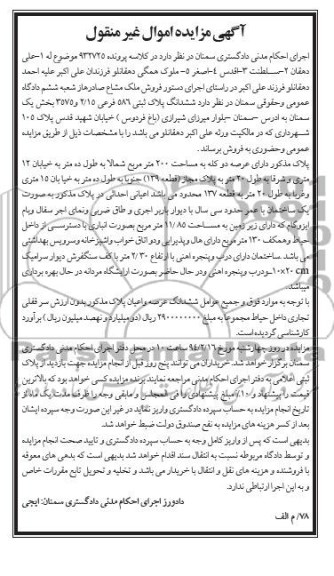 آگهی مزایده اموال غیر منقول
اجرای احکام مدنی دادگستری سمنان در نظر دارد در کلاسه پرونده ۹۳۲۷۲۵ موضوع له ۱-علی
دهقان ۲-سلطنت ۳-اقدس ۴-اصغر ۵- ملوک همگی دهقانلو فرزندان علی اکبر علیه احمد
دهقانلو فرزند علی اکبر در راستای اجرای دستور فروش ملک مشاع صادرهاز شعبه ششم دادگاه
عمومی وحقوقی سمنان در نظر دارد ششدانگ پلاک ثبتی ۵۸۶ فرعی ۲/۱۵ و ۳۵۷۵ بخش یک
سمنان به ادرس -سمنان -بلوار میرزای شیرازی (باغ فردوس ) خیابان شهید قدس پلاک ۱۰۵
شهرداری که در مالکیت ورثه علی اکبر دهقانلو می باشد را با مشخصات ذیل از طریق مزایده
عمومی وحضوری به فروش برساند .
پلاک مذکور دارای عرصه دو کله به مساحت ۲۰۰ متر مربع شمالا به طول ده متر به خیابان ۱۲
متری وشرقا به طول ۲۰ متر به پلاک مجاز (قطعه ۱۳۹) جنوبا به طول ده متر به خیا بان ۱۵ متری
وغربا به طول ۲۰ متر به قطعه ۱۳۷ محدود می باشد اعیانی احداثی در پلاک مذکور به صورت
یک ساختمان با عمر حدود سی سال با دیوار باربر اجری و طاق ضربی ونمای اجر سفال وبام
ایزوگام که دارای زیر زمین به مساحت ۱۱/۸۵ متر مربع بصورت انباری با دسترسی از داخل
حیاط وهمکف ۱۳۰ متر مربع دارای هال وپذیرایی ودو اتاق خواب واشپزخانه وسرویس بهداشتی
می باشد .ساختمان دارای درب وپنجره اهنی با ارتفاع ۲/۳۰ متر با کف سنگفرش دیوار سرامیک
۱۰×۲۰ cm ودرب وپنجره اهنی ودر حال حاضر بصورت ارایشگاه مردانه در حال بهره برداری
میباشد.
با توجه به موارد فوق و جمیع عوامل ششدانگ عرصه واعیان پلاک مذکور بدون ارزش سر قفلی
تجاری داخل حیاط مجموعا به مبلغ ۲۹۰۰۰۰۰۰۰۰ ریال (دو میلیارد و نهصد میلیون ریال ) برآورد
کارشناسی گردیده است .
مزایده در روز چهارشنبه مورخ ۹۴/۲/۱۶ ساعت ۱۰ در محل دفتر اجرای احکام مدنی دادگستری
سمنان برگزار خواهد شد. خریداران می توانند پنج روز قبل از انجام مزایده جهت بازدید از پلاک
ثبتی اعلامی به دفتر اجرای احکام مدنی مراجعه نمایند.برنده مزایده کسی خواهد بود که بالاترین
قیمت را پیشنهاد و ۱۰٪ مبلغ پیشنهادی را فی المجلس و مابقی وجه را ظرف مدت یک ماه از
تاریخ انجام مزایده به حساب سپرده دادگستری واریز نماید در غیر این صورت وجه سپرده ایشان
بعد از کسر هزینه های مزایده به نفع صندوق دولت ضبط خواهد شد.
بدیهی است که پس از واریز کامل وجه به حساب سپرده دادگستری و تایید صحت انجام مزایده
و توسط دادگاه مربوطه نسبت به انتقال سند اقدام خواهد شد بدیهی است که بدهی های معوقه
با فروشنده و هزینه های نقل و انتقال با خریدار می باشد و تخلیه و تحویل تابع مقررات خاص
و به این اجرا ارتباطی ندارد.
دادورز اجرای احکام مدنی دادگستری سمنان: ایجی
۷۸/ م الف